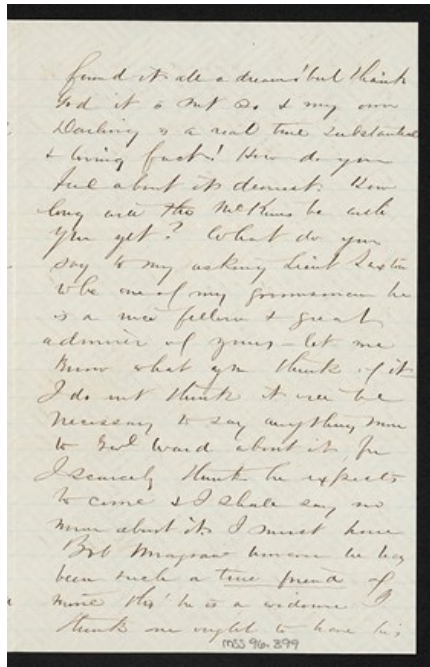 found it all a dream! but thank
God it is not so & my own
Darling is a real true substantial
& loving fact! How do you
feel about it dearest. How
long will the be with
you yet? What do you
say to my asking Lieut Sexton
to be one of my groomsmen he
is a nice fellow & great
admirer of yours – let me
know what you think of it
I do not think it will be
necessary to say anything more
to Genl Ward about it, for
I scarcely think he expects
to come & I shall say no
more about it. I must have
Bob he has
been such a true friend of
mine tho' he is a widower I
think we ought to have his
MSS 96.899